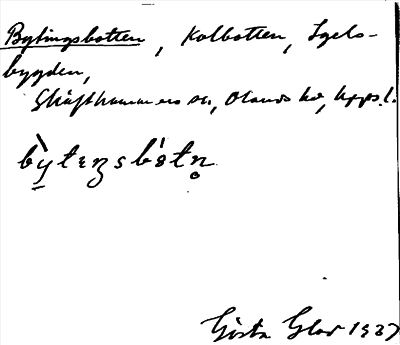 Bytingsbotten, Kolbotten, Igels-
bygden,
Skäfthammars sn, Olands hd, Upps. l.
bỳtɩŋsbótn̥
Gösta Glas 1927